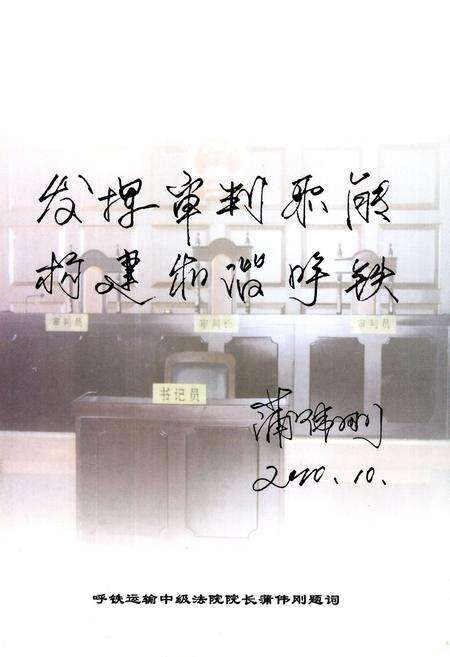 发挥审判职能
构建和谐呼铁
审判员
审判长
审判员
书记员
蒲伟刚
2010.10.
呼铁运输中级法院院长蒲伟刚题词